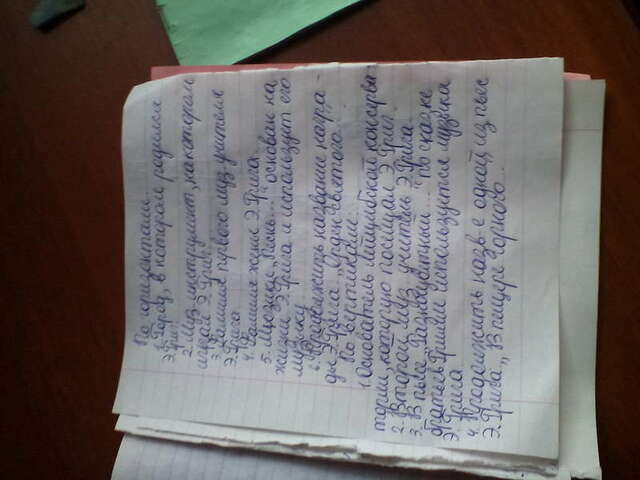 По горизонтали...
1. Город, в котором родился
Э. Григ.
2. Муз. инструмент, на котором
играл Э. Григ.
3. Фамилия первого муз. учителя
Э. Грига
4. Фамилия жены Э. Грига.
5. Мюзикл „Песнь..." основан на
жизни Э. Грига и использует его
музыку.
6. Продолжить название награ-
ды Э. Грига „Орден Святого...
По вертикали...
1. Основатель Лейпцигской консерва-
тории, которую посещал Э. Григ.
2. Второй муз. учитель Э. Грига.
3. В пьесе "по сказке
братьев Гримм используется музыка
Э. Грига.
4. Продолжить назв-е одной из пьес
Э. Грига „В пещере горного...